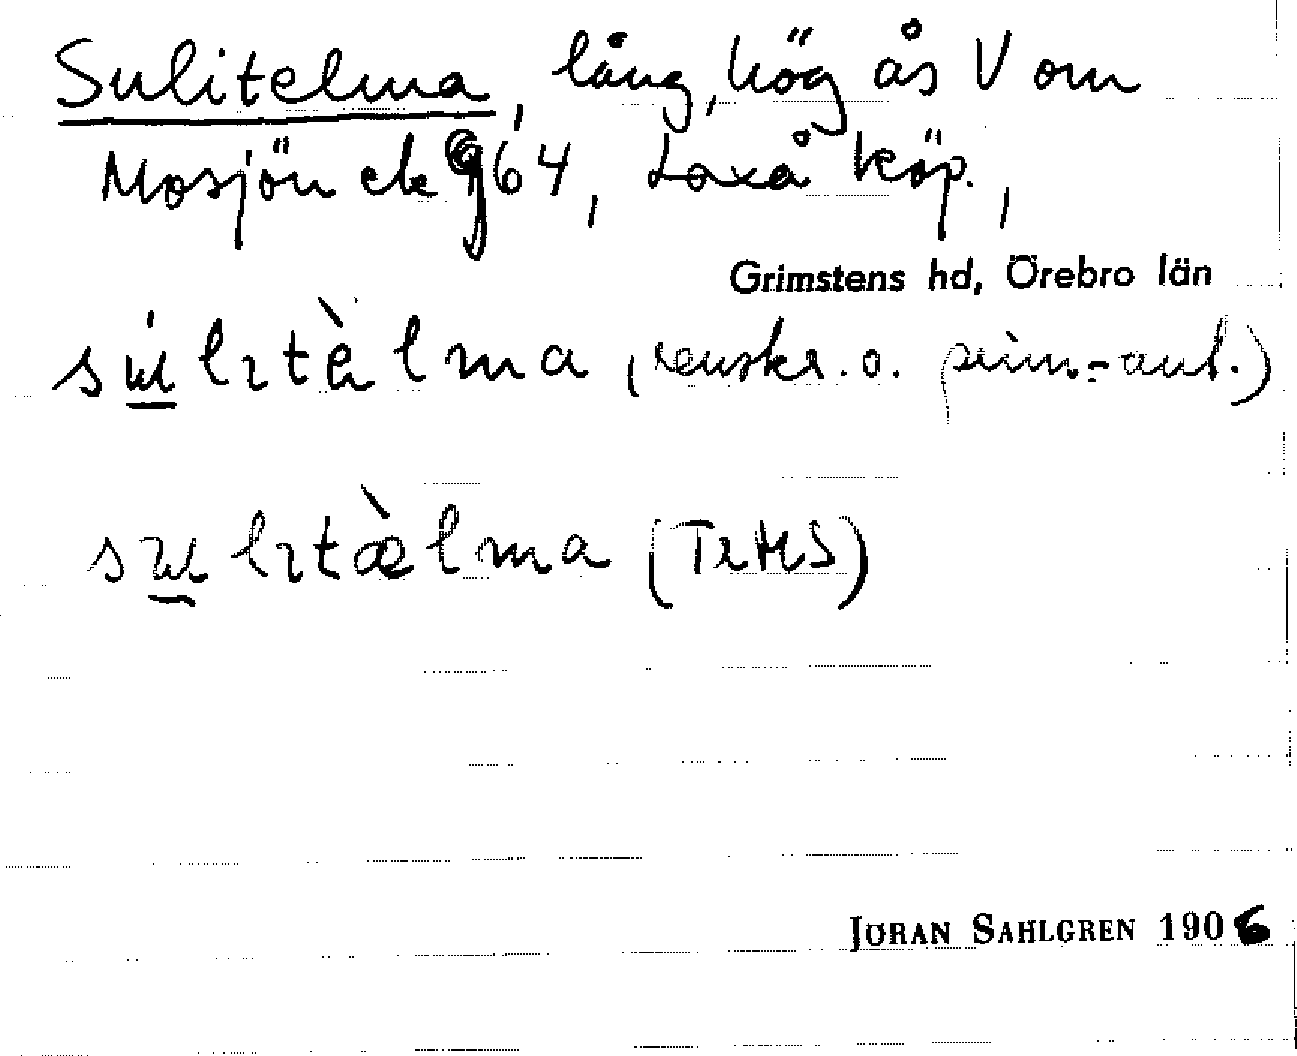 Sulitelma, lång, hög ås V om
Mosjön ek 964, Laxå köp.,
Grimstens hd, Örebro län
sɯ́lıtὲlma (renskr. o. prim.-ant.)
sɯlıtæ̀lma (TrHS)
JÖRAN SAHLGREN 1906